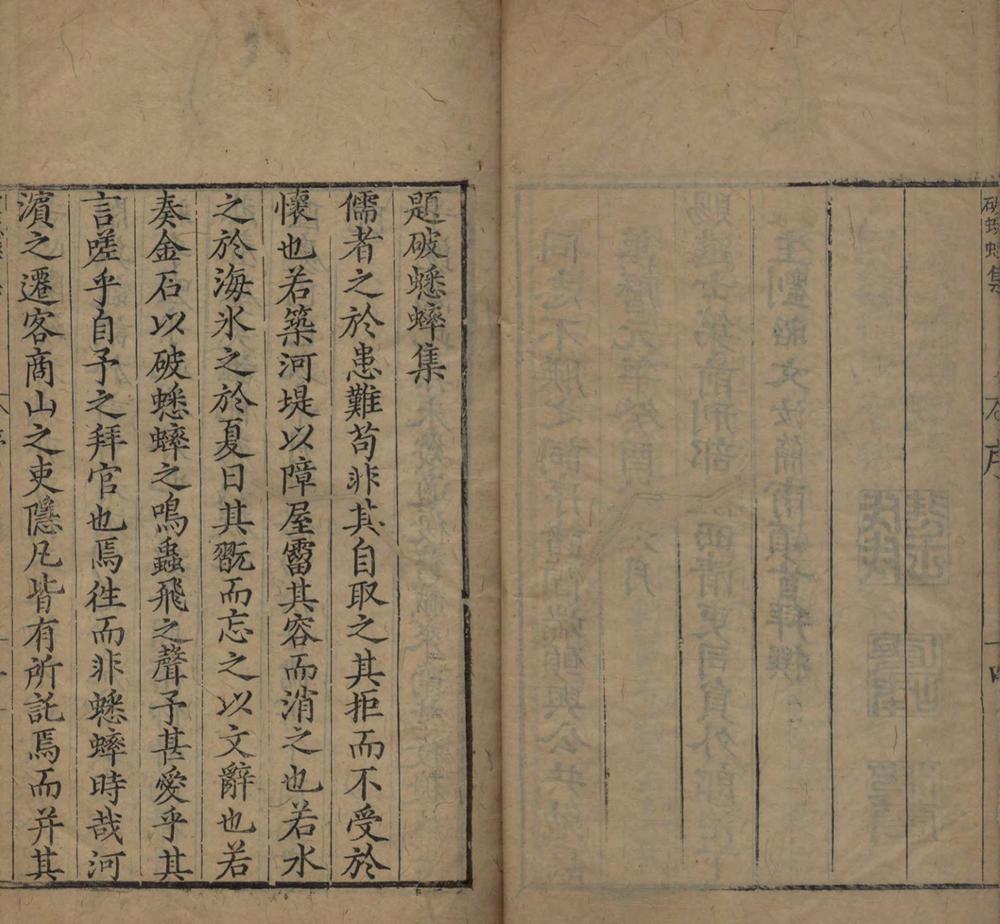 破蟋蟀集
題破蟋蟀集
儒者之於患難苟非其自取之其拒而不受於
懷也若築河堤以障屋霤其容而消之也若水
之於海氷之於夏日其翫而忘之以文辭也若
奏金石以破蟋蟀之鳴蟲飛之聲予甚愛乎其
言嗟乎自予之拜官也焉徃而非蟋蟀時哉河
濱之遷客商山之吏隱凡皆有所託焉而并其